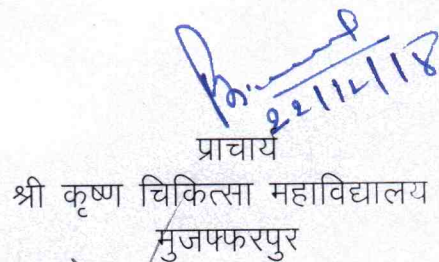 22/12/18
प्राचार्य
श्री कृष्ण चिकित्सा महाविद्यालय
मुजफ्फरपुर